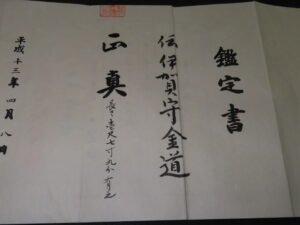 鑑定書
伝伊賀守金道
正真
長さ壱尺七寸九分有之
平成十三年四月八日